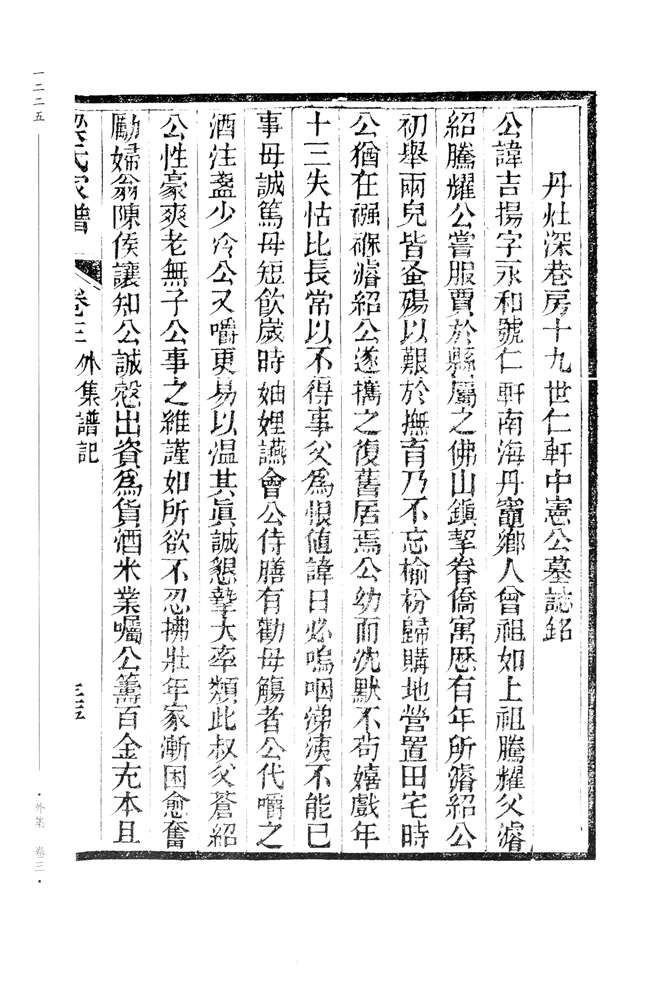 丹灶深巷房十九世仁軒中憲公墓誌銘
公諱吉揚字永和號仁軒南海丹竈鄉人曾祖如上祖騰耀父濬
紹騰耀公嘗服賈於縣屬之佛山鎮挈眷僑寓歷有年所濬紹公
初舉兩兒皆蚤殤以艱於撫育乃不忘榆枌歸購地營置田宅時
公猶在襁褓濬紹公遂攜之復舊居焉公幼而沈默不苟嬉戲年
十三失怙比長常以不得事父為恨值諱日必嗚咽涕洟不能已
事母誠篤母短飲歲時妯娌讌會公侍膳有勸母觴者公代嚼之
酒注盞少冷公又嚼更易以溫其眞誠懇摯大率類此叔父蒼紹
公性豪爽老無子公事之維謹如所欲不忍拂壯年家漸困愈奮
勵婦翁陳俟讓知公誠愨出資為貨酒米業囑公籌百金充本且
梁氏家譜 卷三 外集譜記
一二二五
·外集 卷三·